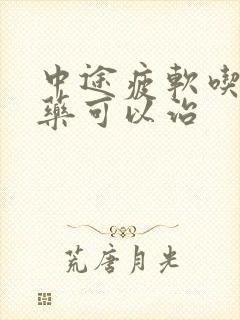 中途疲軟喫
藥可以治
荒唐月光